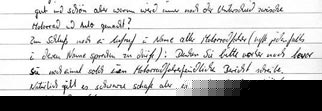 gut und schön aber worum wird immer noch der Unterschied zwischen
Motorrad und Auto gemacht?
Zum Schluß noch in Aufruf in Name aller Motorradfahrer (hoffe jedenfalls
in deren Name sprechen zu dürfen): Denken Sie bitte vorher nach bevor
Sie noch einmal solch einen Motorradfahrerfeindliche Bericht schreiben.
Natürlich gibt es schwarze Schafe aber es